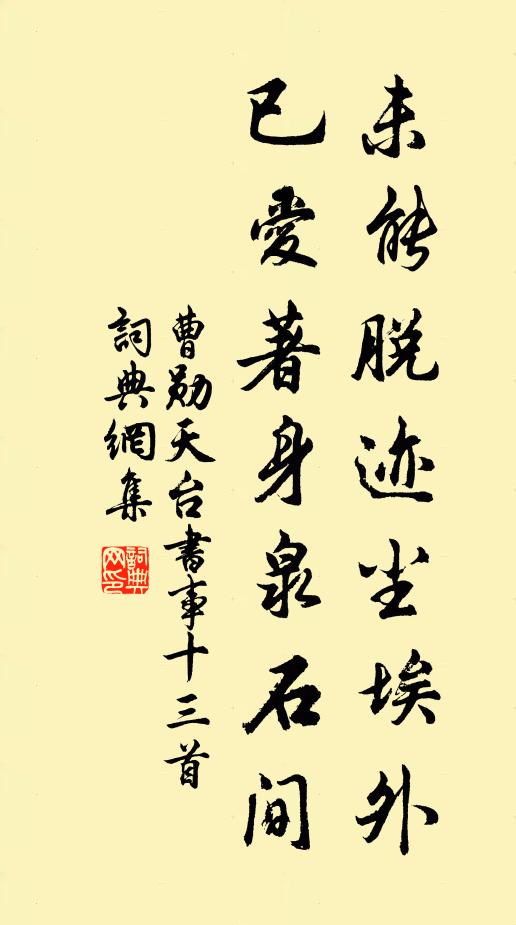 未能脱迹尘埃外
已愛著身泉石间
曹勛天台書事十三首
詞典網集
詞典网印